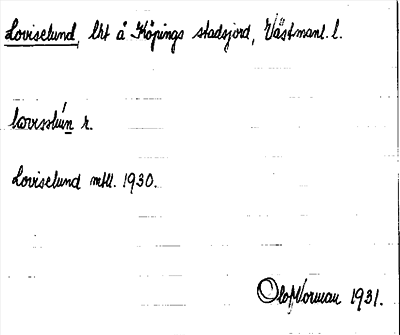 Loviselund, lht å Köpings stadsjord, Västmanl. l.
lovisslún r.
Loviselund mtl. 1930.
Olof Norman 1931.